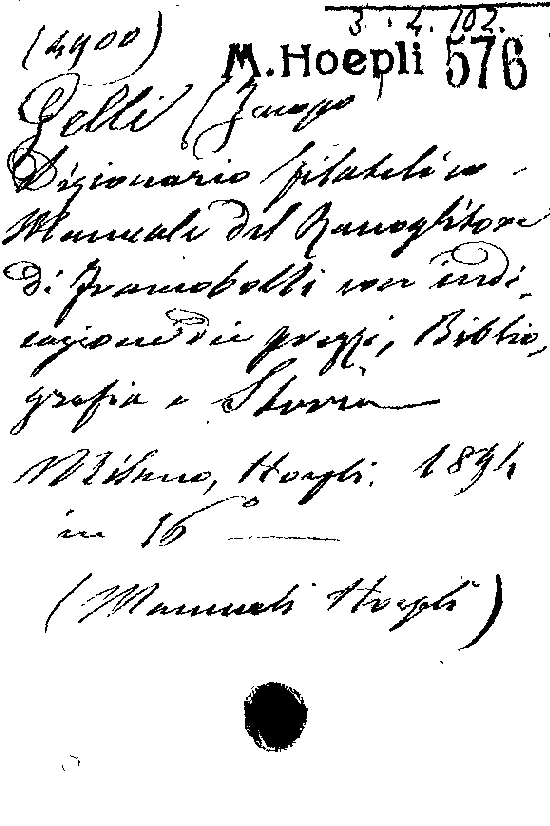 3.4.102.
(4900)
M. Hoepli 576
Gelli (Jacopo
Dizionario filatelico -
Manuale del Raccoglitore
di francobolli con indi-
cazione dei prezzi, Biblio-
grafia e Storia
Milano, Hoepli. 1894
in 16°
(Manuali Hoepli)